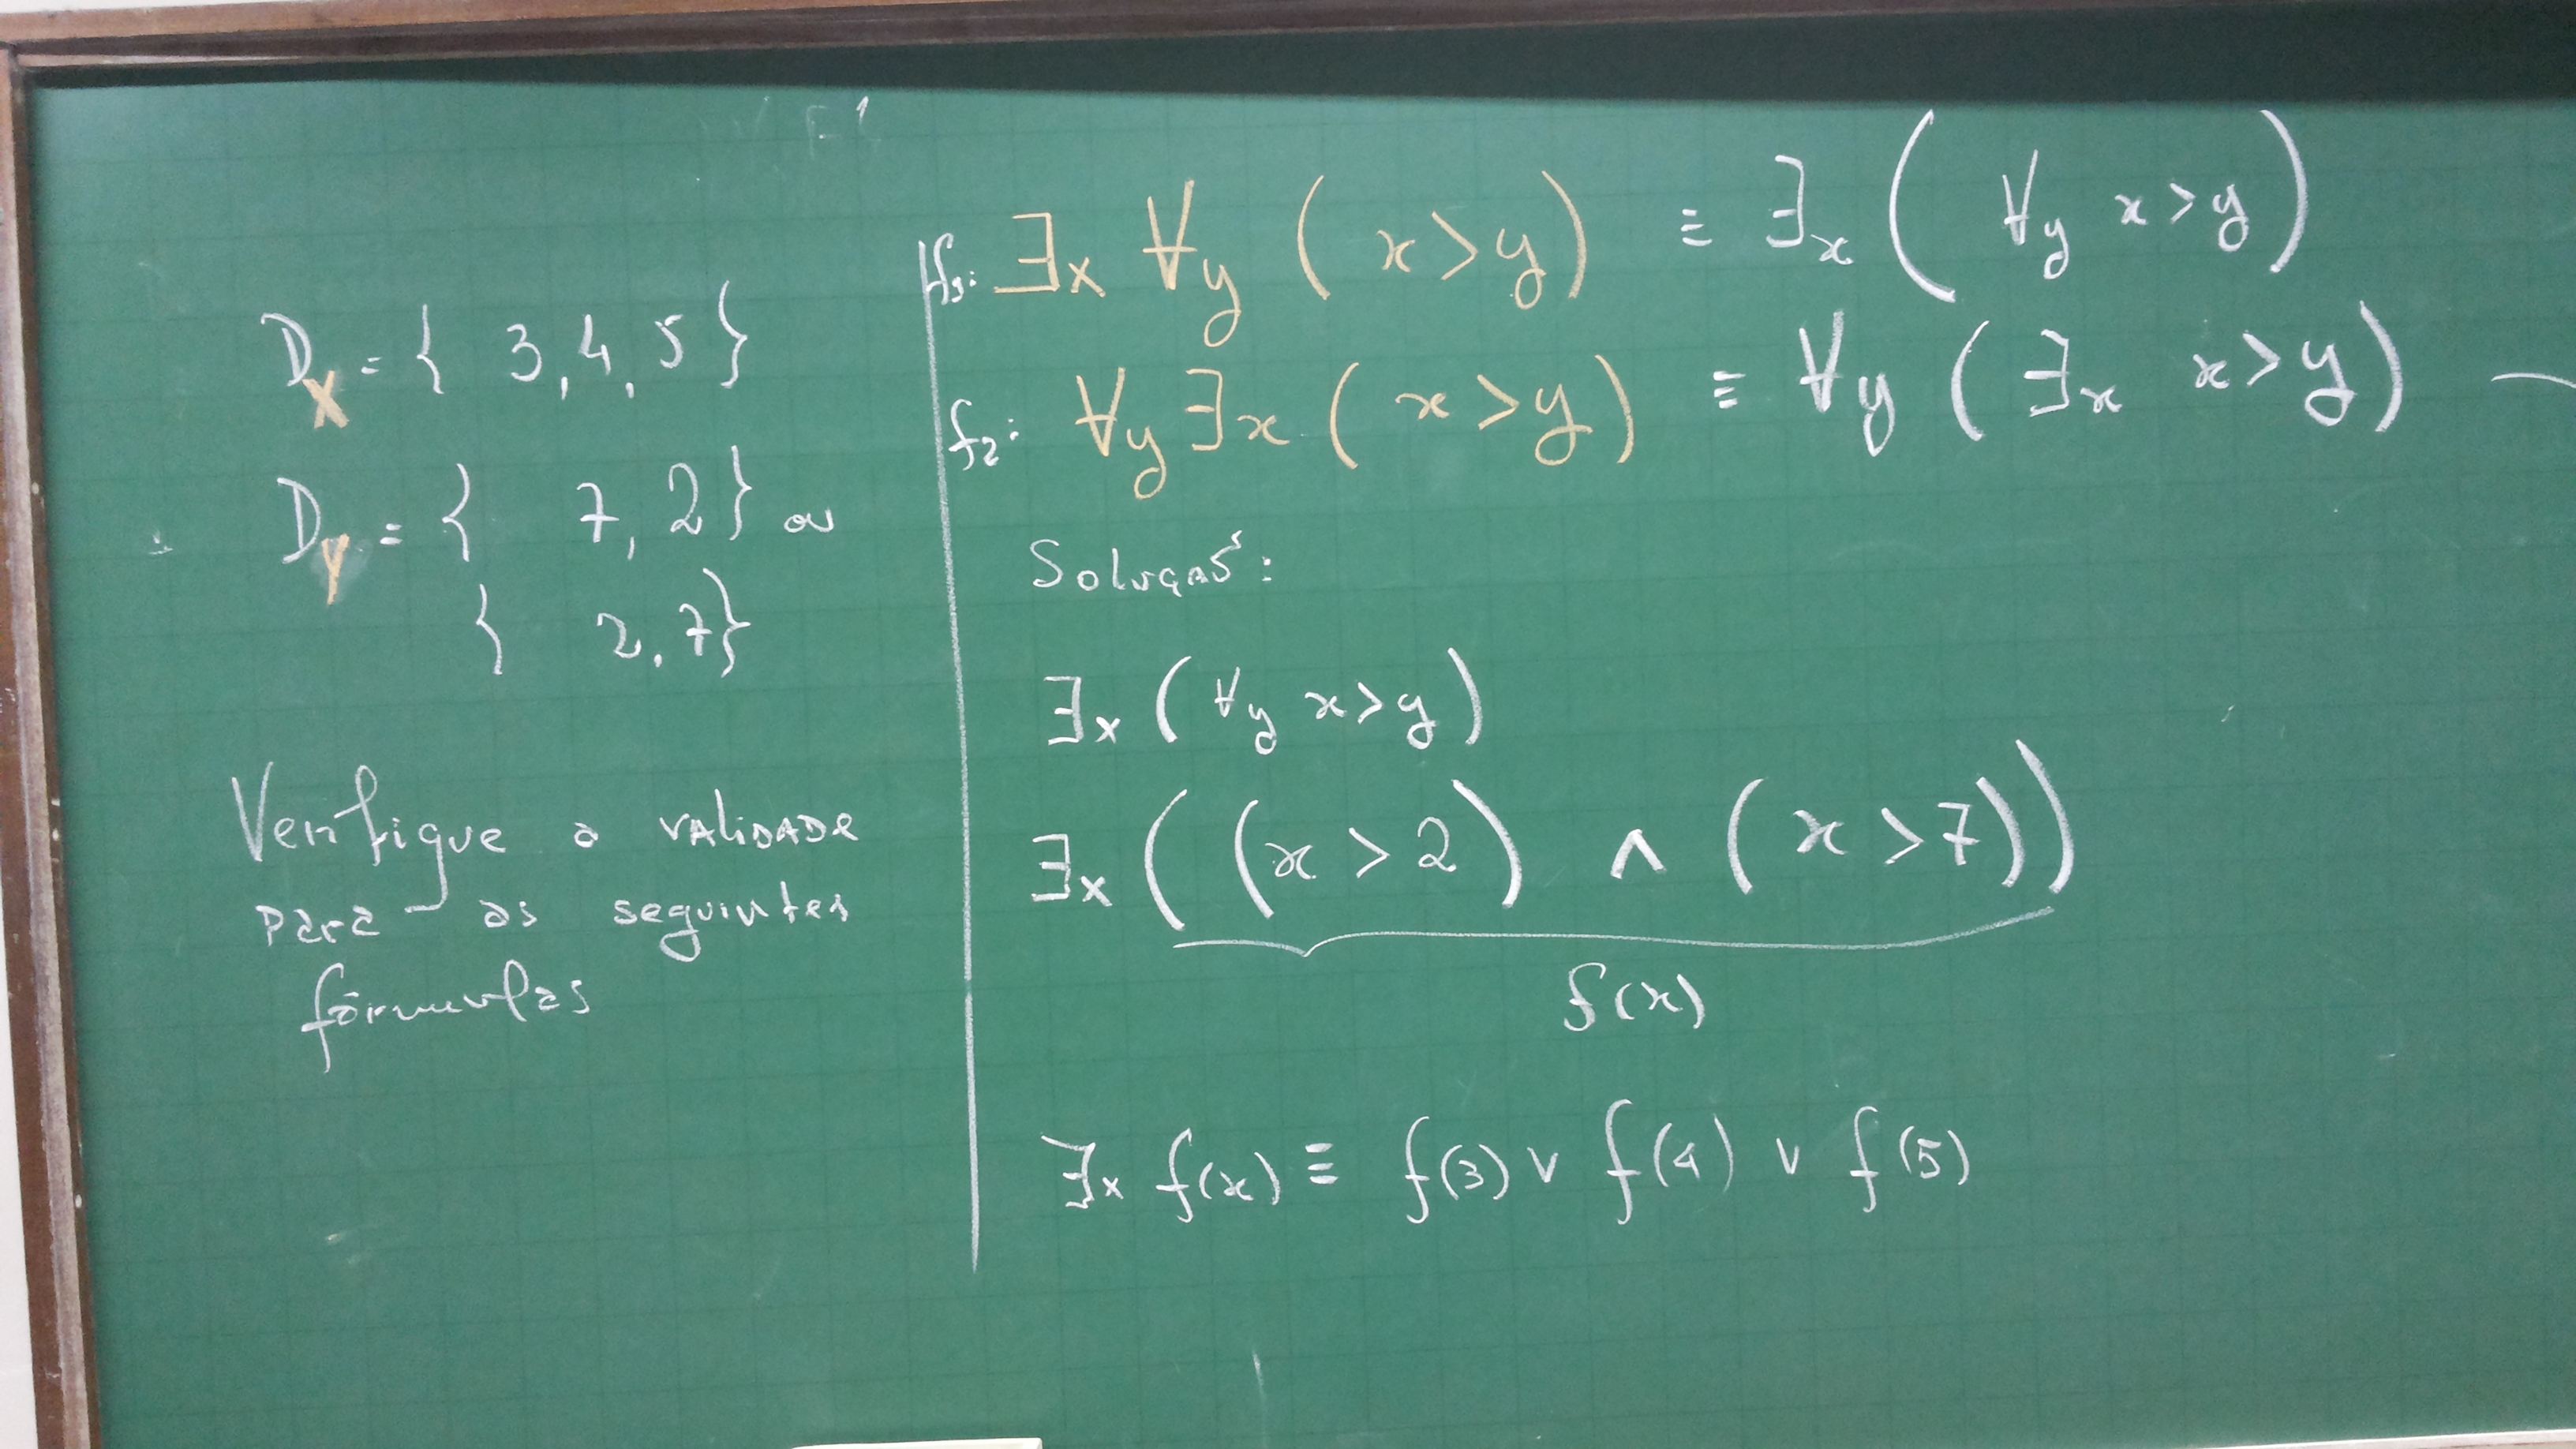 D_x = { 3, 4, 5 }
D_y = { 7, 2 } ou
{ 2, 7 }
Verifique a validade
para as seguintes
fórmulas
f₁: ∃x ∀y ( x > y ) ≡ ∃x ( ∀y x > y )
f₂: ∀y ∃x ( x > y ) ≡ ∀y ( ∃x x > y )
Solução:
∃x ( ∀y x > y )
∃x ( ( x > 2 ) ∧ ( x > 7 ) )
f(x)
∃x f(x) ≡ f(3) ∨ f(4) ∨ f(5)